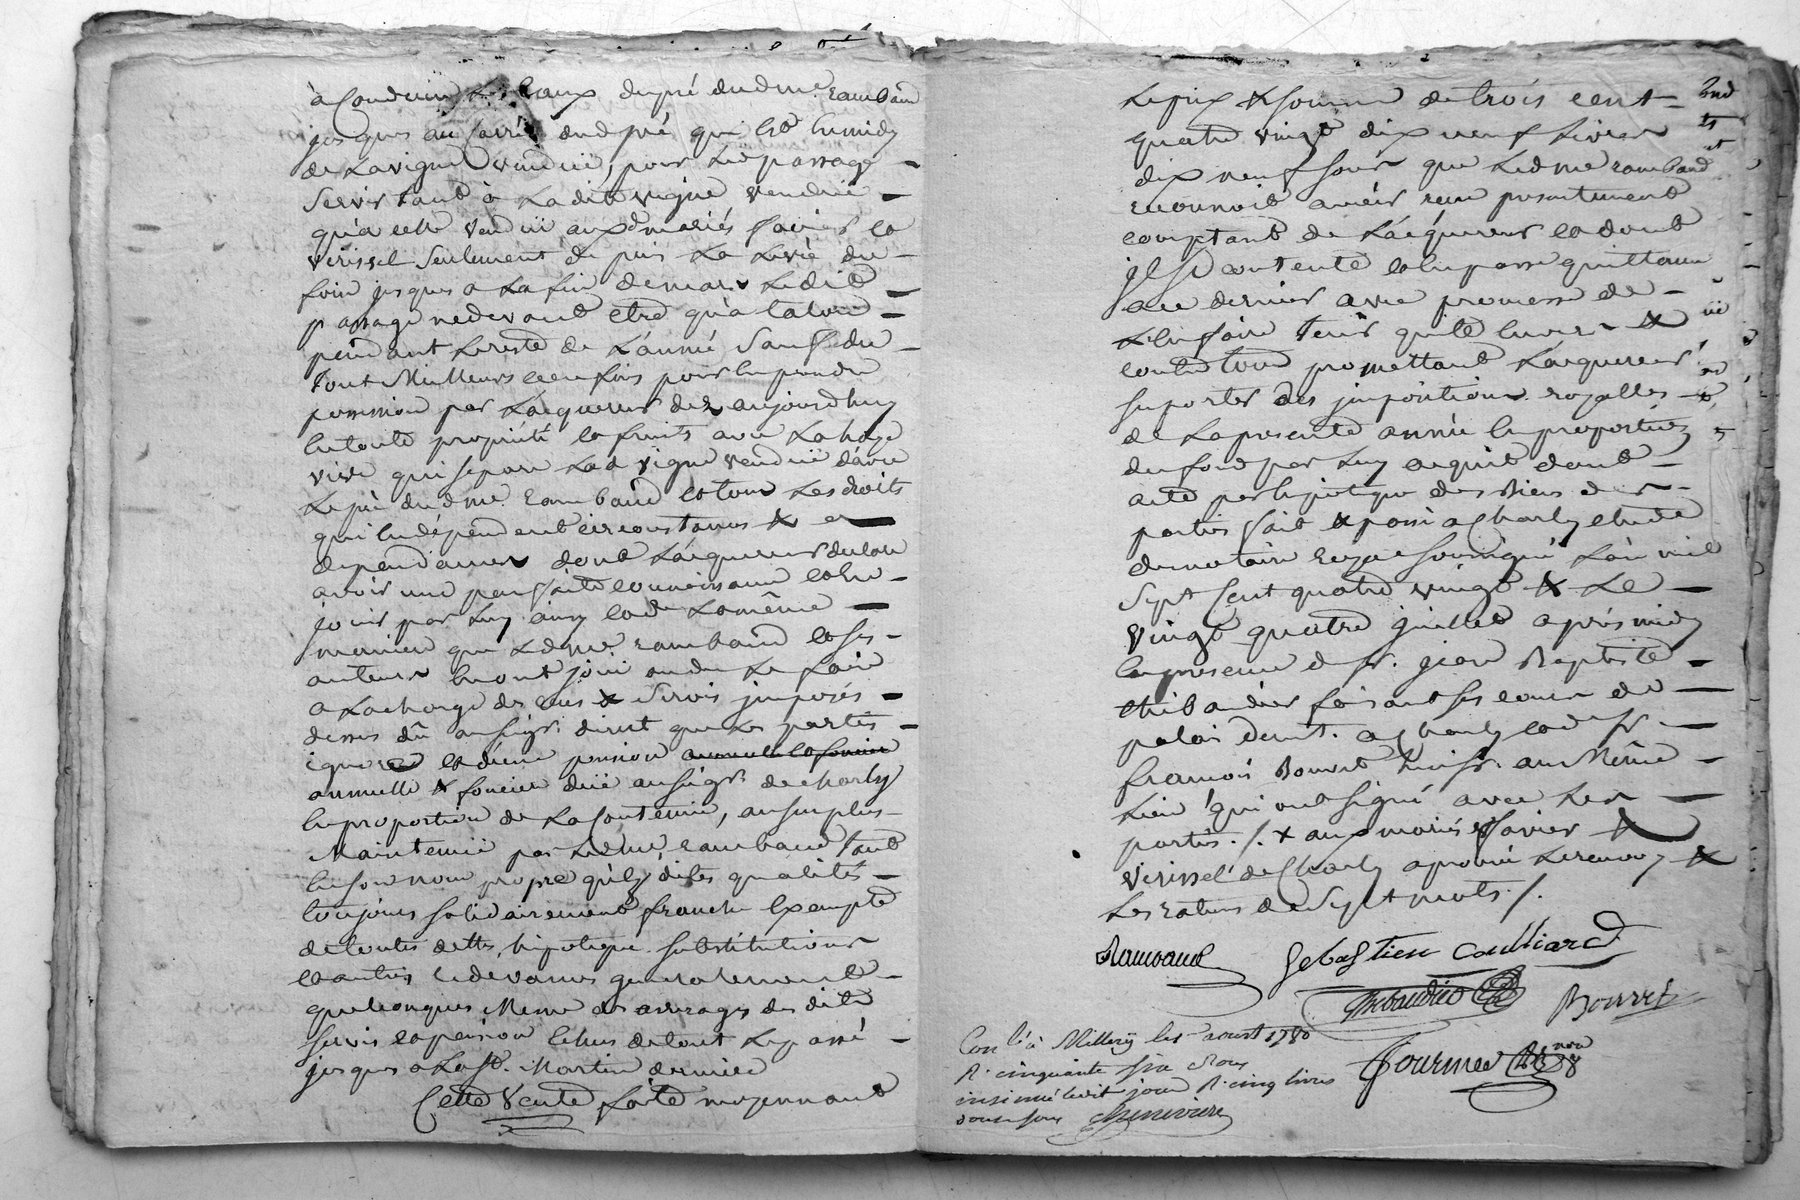 à Conduire les Eaux dupré dudme. Rambaud
jusques au dud pré qui est
de Lavigne vendüe, pour led passage
Servir tant à Ladite vigne vendüe
qu'a celle vendüe aux d mariés favier et
verissel Seulement depuis La Levée du
foin jusques a La fin de mars Ledit
passage nedevant etre qu'a talon
pendant Lereste de Lannée Sauf du
tout Meilleurs Confins pour en prendre
possession par Lacquereur des aujourdhuy
en toute propriété et fruits avec La haye
vive qui separe Lad vigne vendüe d'avec
Le pré dudme. Rambaud et tous Les droits
qui en dépendent circonstances &
dependances dont Lacquereur declare
avoir une parfaite connoissance et en
jouir par Luy ainsy et de La même
maniere que Ledme. Rambaud et ses
auteurs en ont joui ou du Le faire
a Lacharge des cens & Servis imposés
dessus dû au seigr. direct que Les parties
ignorent et d'une pension annuelle et fonciere
annuelle & fonciere düe au seigr. de charly
en proportion de La Contenue, au surplus
Maintenüe par Ledme. Rambaud tant
en son nom propre qu'ez dites qualités
toujours solidairement franche Exempte
de toutes dettes, hipoteque substitutions
et autres redevances generalement
quelconques Meme des arrerages des dits
servis et pension echus de tout Le passé
jusques a La St. Martin derniere
Cette Vente faite moyennant
Le prix & somme de trois cent
quatre vingt dix neuf Livres
dix neuf sous que Ledme Rambaud
reconnoit avoir reçu presentement
comptant de Lacquereur et dont
il se contente et en passe quittance
a ce dernier avec promesse de
L'en faire tenir quitte envers &
contre tous promettant Lacquereur
suporter les impositions royalles
de La presente année en proportion
du fond par Luy acquit dont
acte par hipoteque des Biens des
parties fait & passé a Charly etude
du notaire Royal soussigné L'an mil
Sept Cent quatre vingt & Le
vingt quatre juillet après midy
en presence de sr. jean Baptiste
thibaudier faisant ses cours de
palais demt. a Charly et de sr.
francois Bourret huissr. au Même
Lieu qui ont signé avec Les
parties ./. x aux mariés favier &
verissel de Charly aprouvé Lerenvoy &
Les ratures de Sept mots ./.
Rambaud Sebastien Caulliard
Thibaudier Bourret
Con.lé à Millery le 1 aoust 1780
R. cinquante six sous
insinué ledit jour R. cinq livres
douze sous Chenevière
Fourmer nore